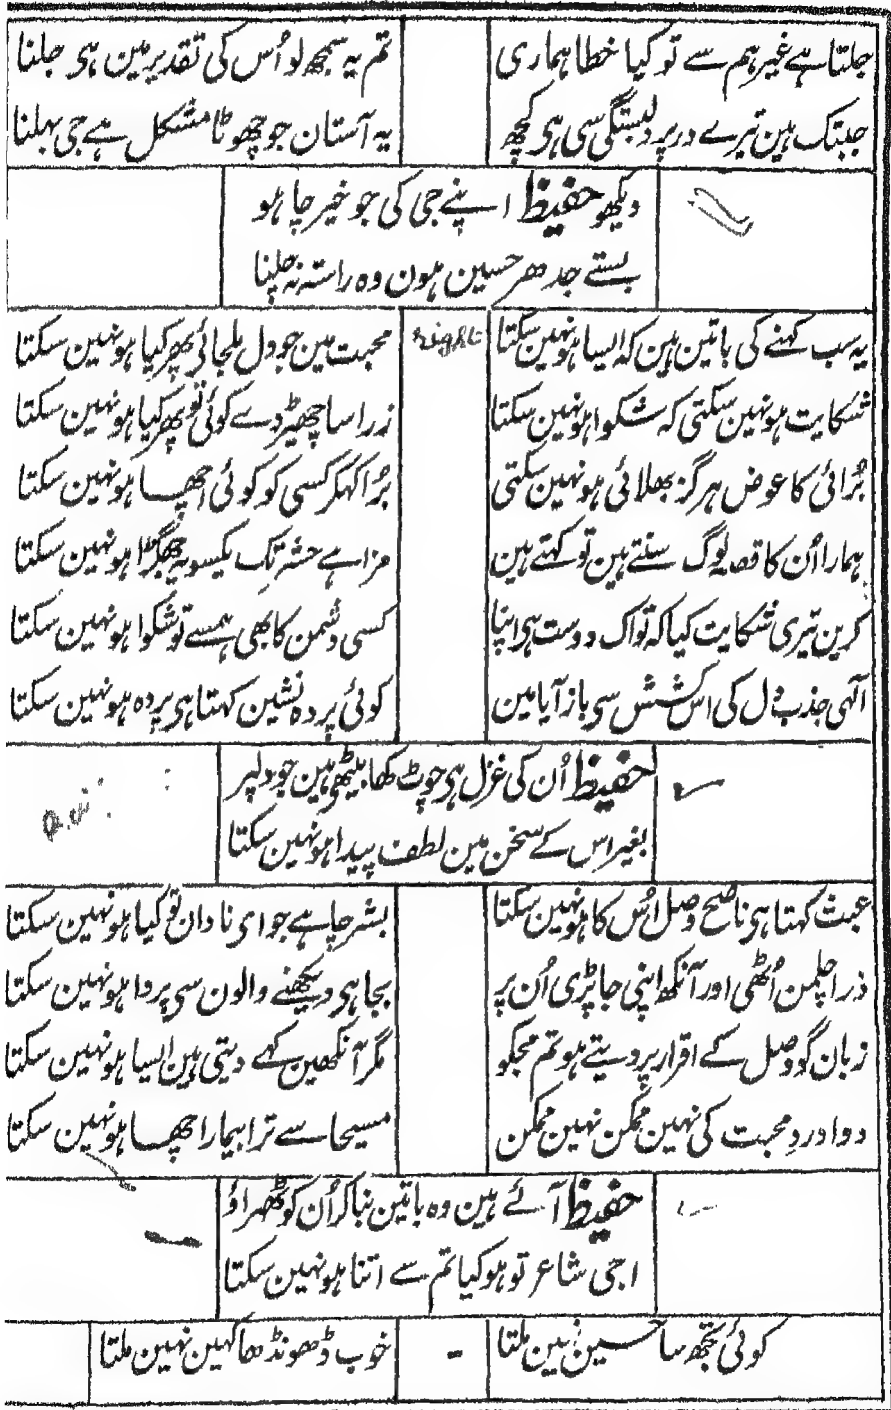 جلتا ہے غیر ہم سے تو کیا خطا ہماری تم یہ سمجھ لو اُس کی تقدیر مین ہی جلنا
جبتک ہین تیرے در پر دلبستگی سی ہی کچھ یہ آستان جو چھوٹا مشکل ہے جی بہلنا
دیکھو حفیظ اپنے جی کی جو خیر چاہو
بستے جدھر حسین ہون وہ راستہ نہ چلنا
یہ سب کہنے کی باتین ہین کہ ایسا ہو نہین سکتا right محبت مین جو دل ملجائی پھر کیا ہو نہین سکتا
شکایت ہو نہین سکتی کہ شکوا ہو نہین سکتا زرا سا چھیڑ دے کوئی تو پھر کیا ہو نہین سکتا
بُرائی کا عوض ہرگز بھلائی ہو نہین سکتی بُرا کہکر کسی کو کوئی اچھا ہو نہین سکتا
ہمارا اُن کا قصہ لوگ سنتے ہین تو کہتے ہین مزا ہے حشر تک یکسو یہ جھگڑا ہو نہین سکتا
کرین تیری شکایت کیا کہ تو اک دوست ہی اپنا کسی دشمن کا بھی ہمسے تو شکوا ہو نہین سکتا
آلہی جذب دل کی اس کشش سی باز آیا مین کوئی پردہ نشین کہتا ہی پردہ ہو نہین سکتا
حفیظ اُن کی غزل ہی چوٹ کھا بیٹھی ہین جو دلپر
بغیر اس کے سخن مین لطف پیدا ہو نہین سکتا
عبث کہتا ہی ناصح وصل اُس کا ہو نہین سکتا بشر چاہے جو ای نادان تو کیا ہو نہین سکتا
ذرا چلمن اُٹھی اور آنکھ اپنی جا پڑی اُن پر بجا ہی دیکھنے والون سی پردا ہو نہین سکتا
زبان گو وصل کے اقرار پر دیتے ہو تم مجکو مگر آنکھین کہے دیتی ہین ایسا ہو نہین سکتا
دوا دردِ محبت کی نہین ممکن نہین ممکن مسیحا سے ترا بیمار اچھا ہو نہین سکتا
حفیظ آئے ہین وہ باتین بنا کر اُن کو ٹھہراؤ
اجی شاعر تو ہو کیا تم سے اتنا ہو نہین سکتا
کوئی تجھ سا حسین نہین ملتا - خوب ڈھونڈھا کہین نہین ملتا